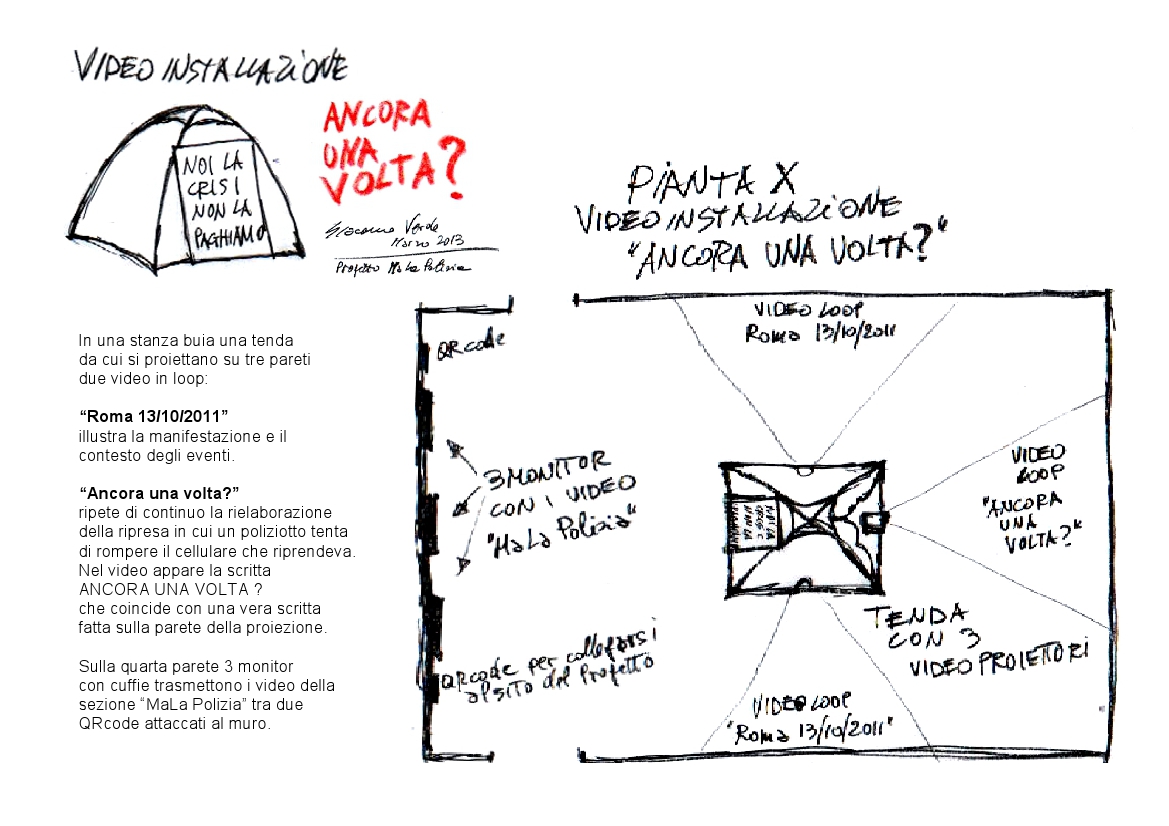 VIDEOINSTALLAZIONE
NOI LA
CRISI
NON LA
PAGHIAMO
ANCORA
UNA
VOLTA?
Giacomo Verde
Marzo 2013
Progetto MaLa Polizia
In una stanza buia una tenda
da cui si proiettano su tre pareti
due video in loop:
“Roma 13/10/2011”
illustra la manifestazione e il
contesto degli eventi.
“Ancora una volta?”
ripete di continuo la rielaborazione
della ripresa in cui un poliziotto tenta
di rompere il cellulare che riprendeva.
Nel video appare la scritta
ANCORA UNA VOLTA ?
che coincide con una vera scritta
fatta sulla parete della proiezione.
Sulla quarta parete 3 monitor
con cuffie trasmettono i video della
sezione “MaLa Polizia” tra due
QRcode attaccati al muro.
PIANTA X
VIDEOINSTALLAZIONE
"ANCORA UNA VOLTA?"
VIDEO LOOP
Roma 13/10/2011
QRcode
3 MONITOR
CON I VIDEO
"MaLa Polizia"
VIDEO
LOOP
"ANCORA
UNA
VOLTA?"
NOI LA
CRISI
NON LA
TENDA
CON 3
VIDEOPROIETORI
QRcode per collegarsi
al sito del Progetto
VIDEO LOOP
"Roma 13/10/2011"